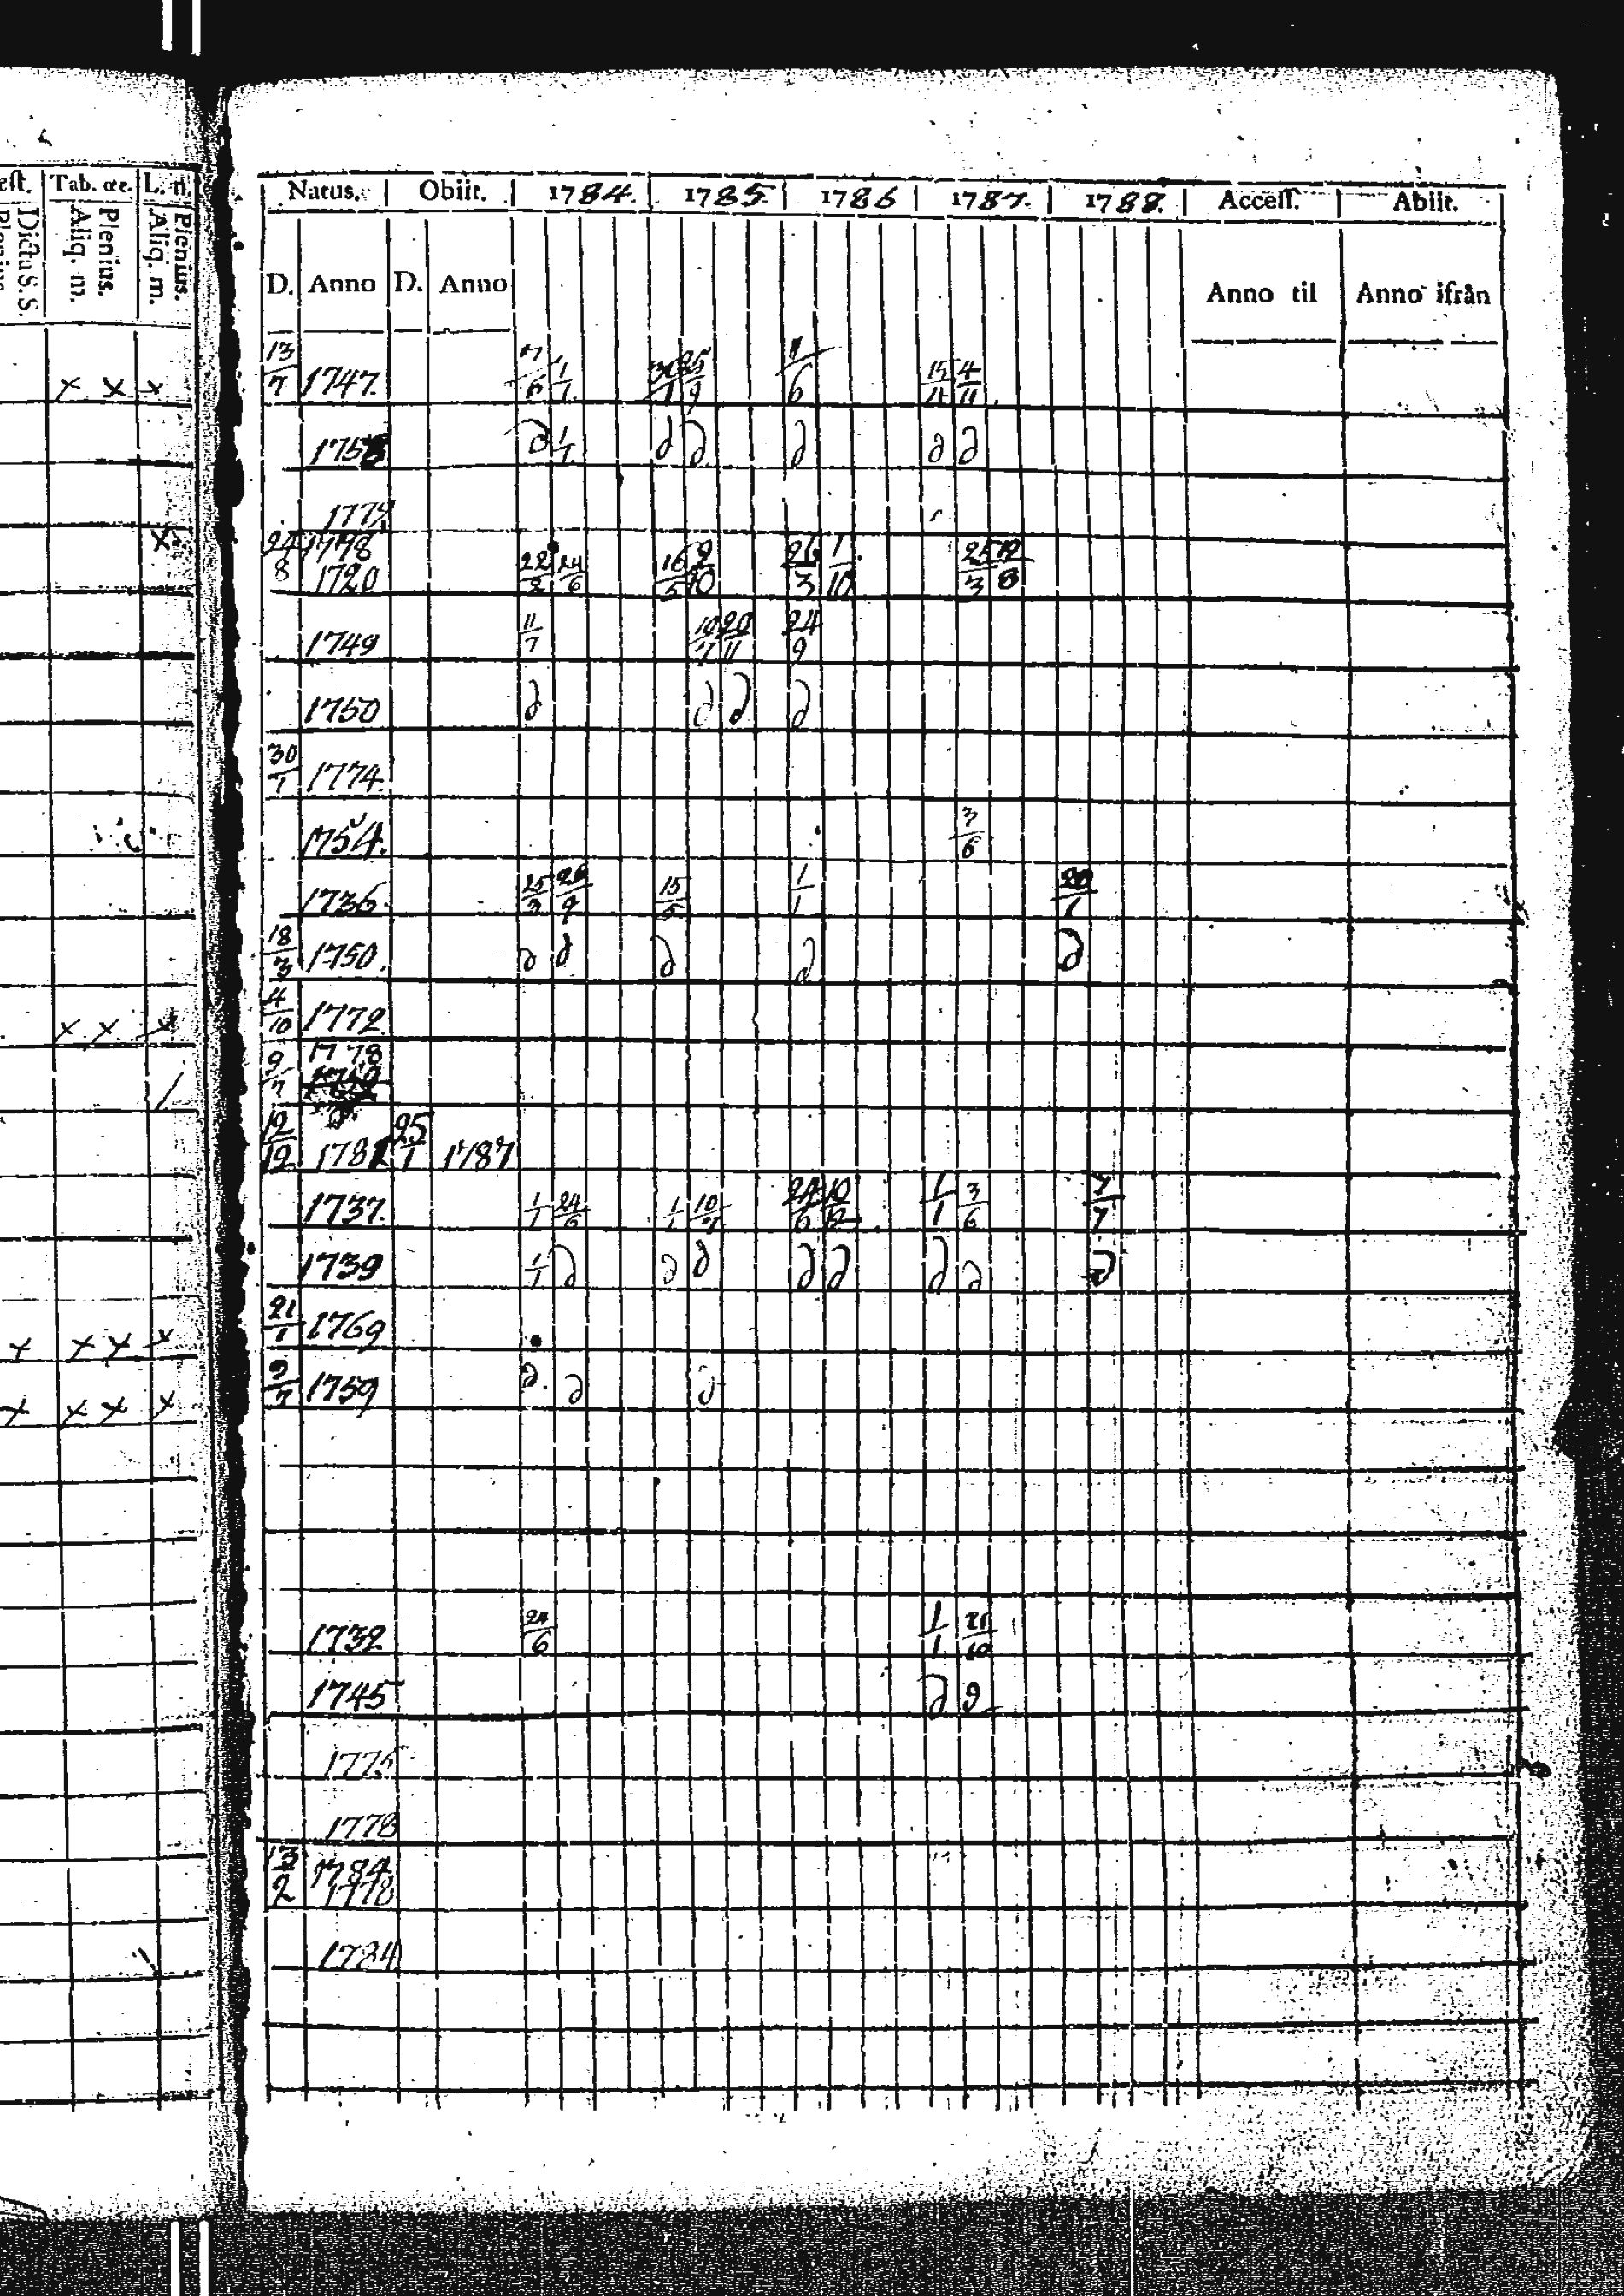 est. Tab. œc. L. n.
Dicta S. S. Plenius. Aliq. m. Plenius. Aliq. m.
Natus. Obiit. 1784. 1785. 1786 1787. 1788. Access. Abiit.
D. Anno D. Anno Anno til Anno ifrån
x x x 13/7 1747. 1/1 25/9 1/6 15/4 4/11
∂ 1/1 ∂ ∂ ∂ ∂ ∂
x 24/8 1778
1720 22/2 24/6 16/5 2/10 26/3 1/10 25/3
1749 11/7 20/11 24/9
1750 ∂ ∂ ∂ ∂
30/1 1774.
1754. 3/6
1736. 25/3 26/9 15/5 1/1
18/3 1750. ∂ ∂ ∂ ∂ ∂
x x x 4/10 1772
9/7 1778
12/12 25/1 1787
1737. 1/1 24/6 1/1 10/7 24/6 10/12 1/1 3/6 7/7
1739 1/1 ∂ ∂ ∂ ∂ ∂ ∂ ∂ ∂
x x x x 21/1 1769
x x x x 1759 ∂. ∂ ∂
1732 24/6 1/1 21/10
1745 ∂ ∂
1775
1778
1784
1778
1784